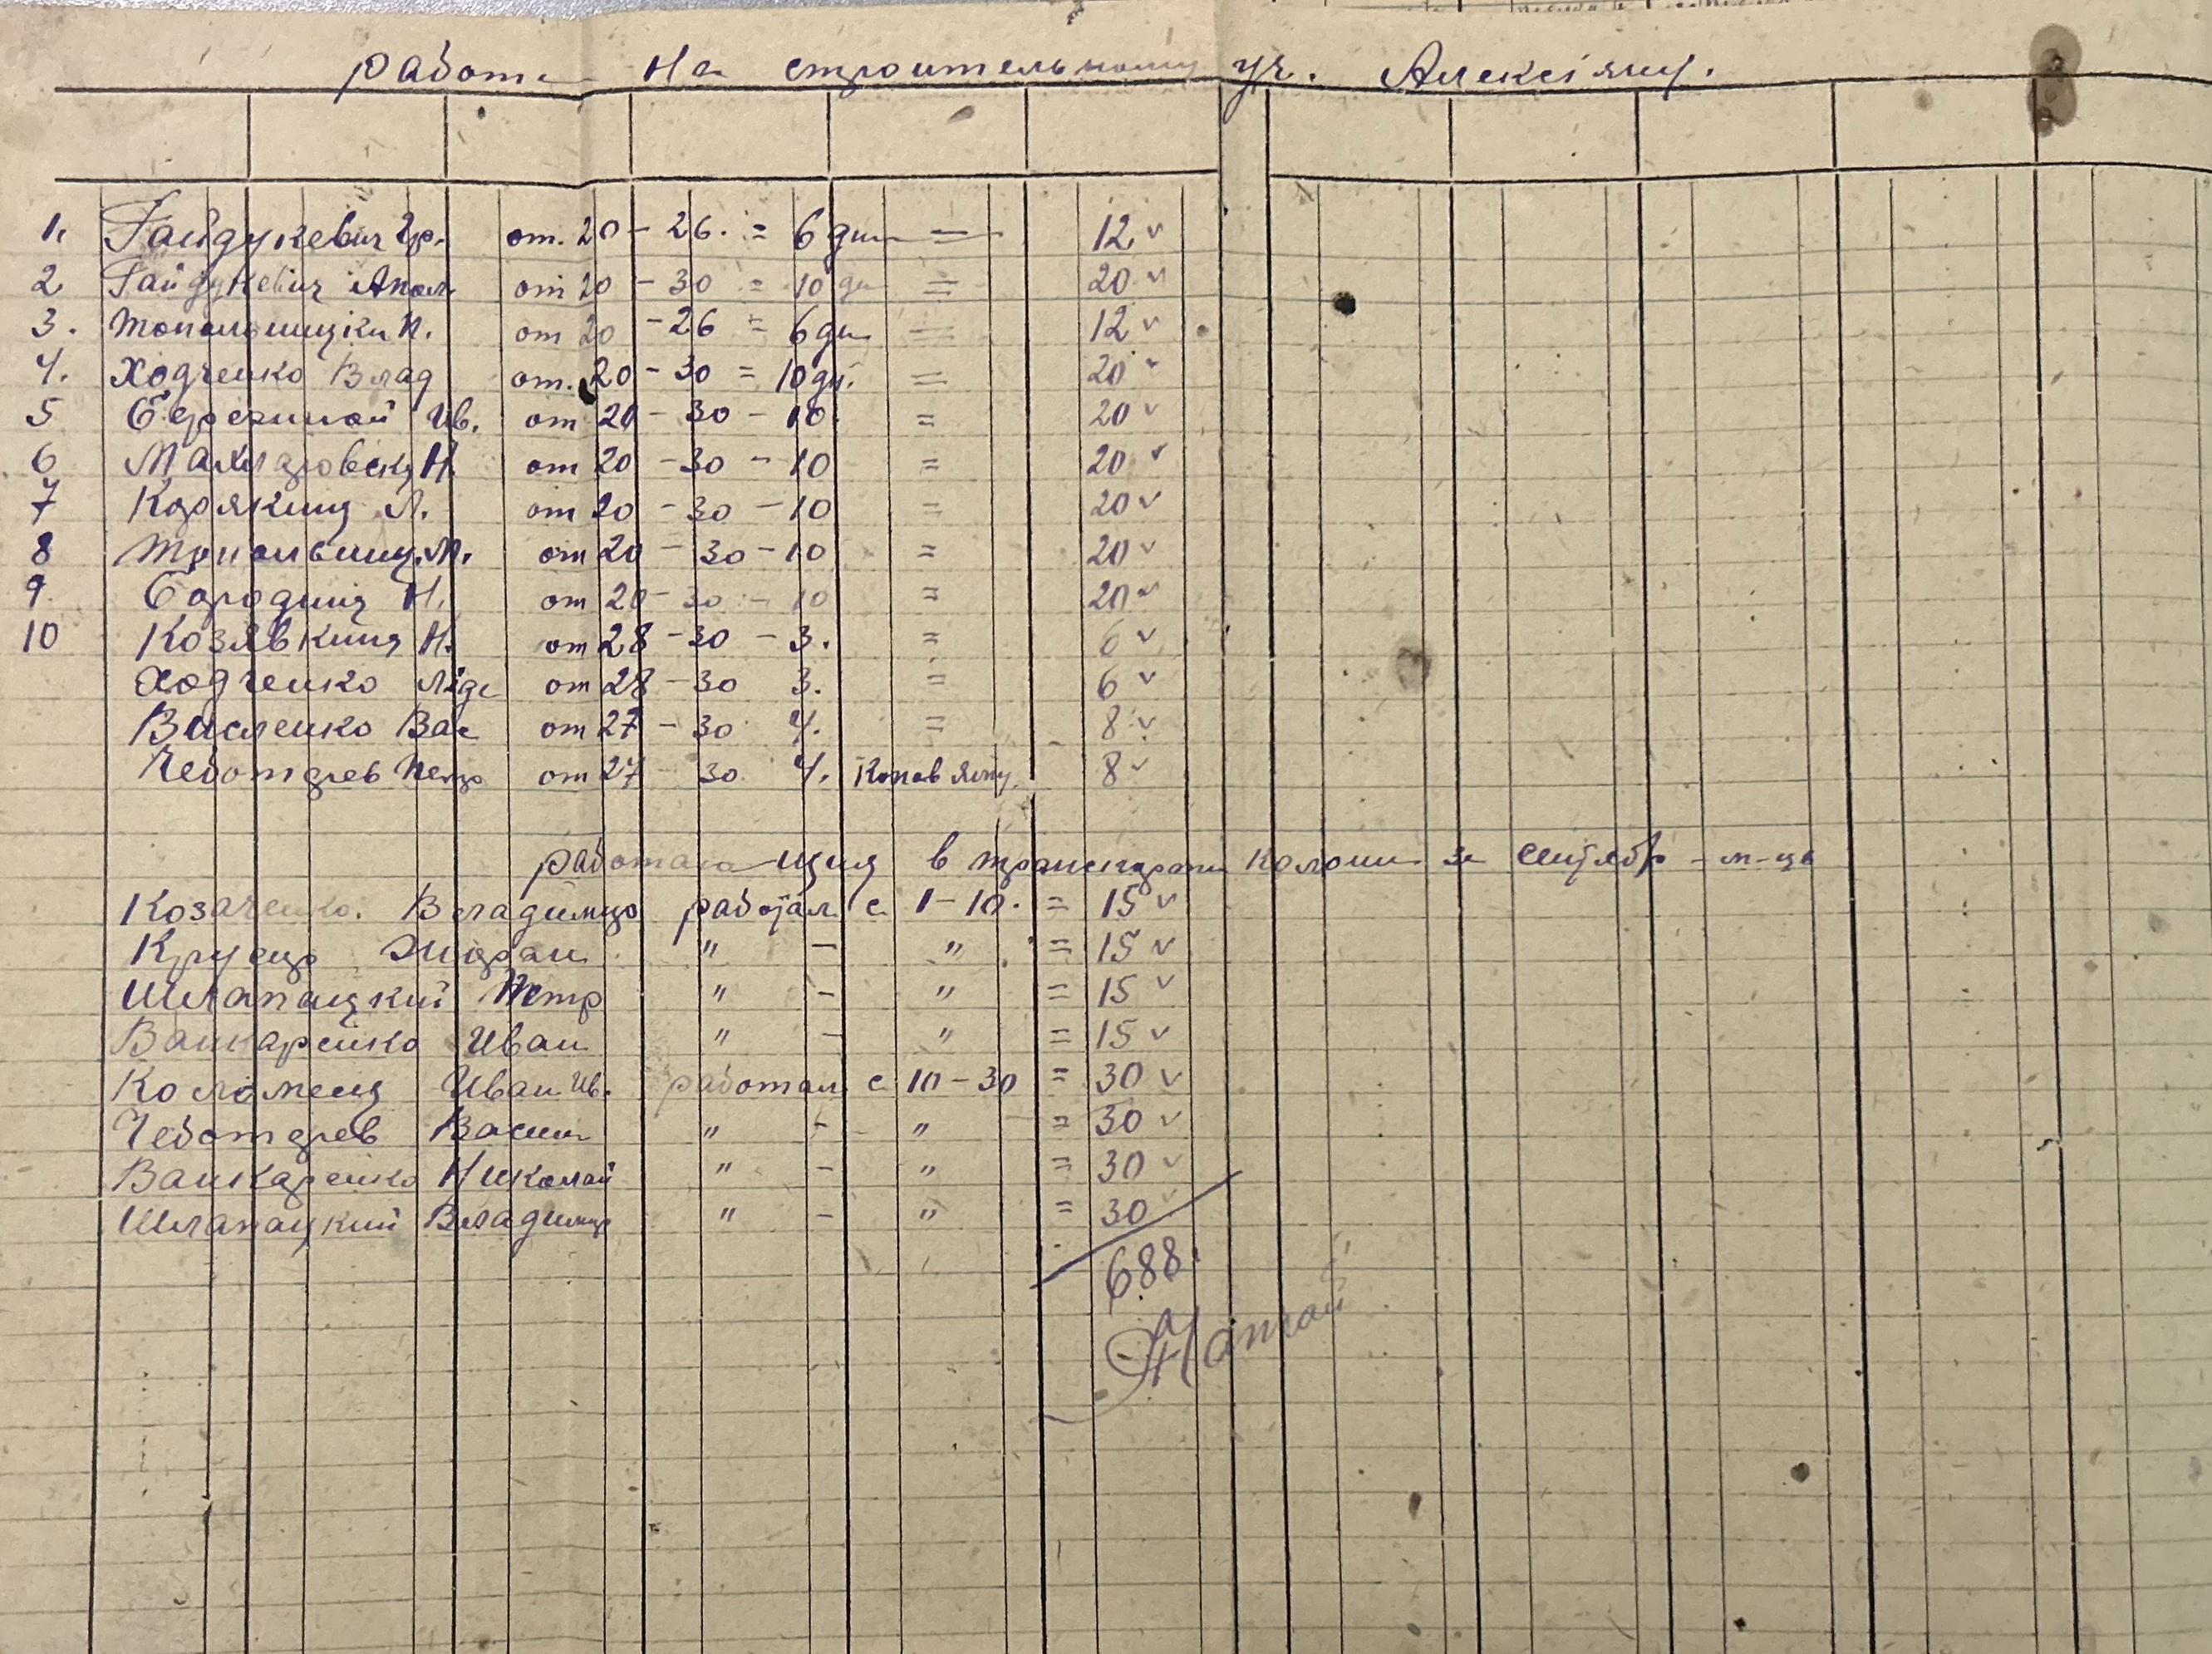 работа на строительному уч. Алексіяну.
1. Гайдукевич Гр. от. 20 - 26. = 6 дни = 12 v
2 Гайдукевич Анат от 20 - 30 = 10 дн = 20 v
3. Топольницки Н. от 20 - 26 = 6 дн = 12 v
4. Ходченко Влад от. 20 - 30 = 10 дн. = 20 v
5 Березиной Ив. от 20 - 30 - 10. = 20 v
6 Н. от 20 - 30 - 10 = 20 v
7 Корякину Л. от 20 - 30 - 10 = 20 v
8 Топольниц. М. от 20 - 30 - 10 = 20 v
9. Бородину Н. от 20 - 30 - 10 = 20 v
10 Козявкину Н. от 28 - 30 - 3. = 6 v
Ходченко Ліде от 28 - 30 3. = 6 v
Висленко Вас от 27 - 30 4. = 8 v
Чеботарев Петр от 27 - 30. 4. Копав яму. 8 v
работающия в колони за сентябр - м-ць
Козаченко. Владимир работал с 1-10. = 15 v
" - " = 15 v
Шлапацкий Петр " - " = 15 v
Ванкаренко Иван " - " = 15 v
Коломеец Иван Ив. работал с 10-30 = 30 v
Чеботарев Васил " - " = 30 v
Ванкаренко Николай " - " = 30 v
Шлапацкий Владимир " - " = 30
688.